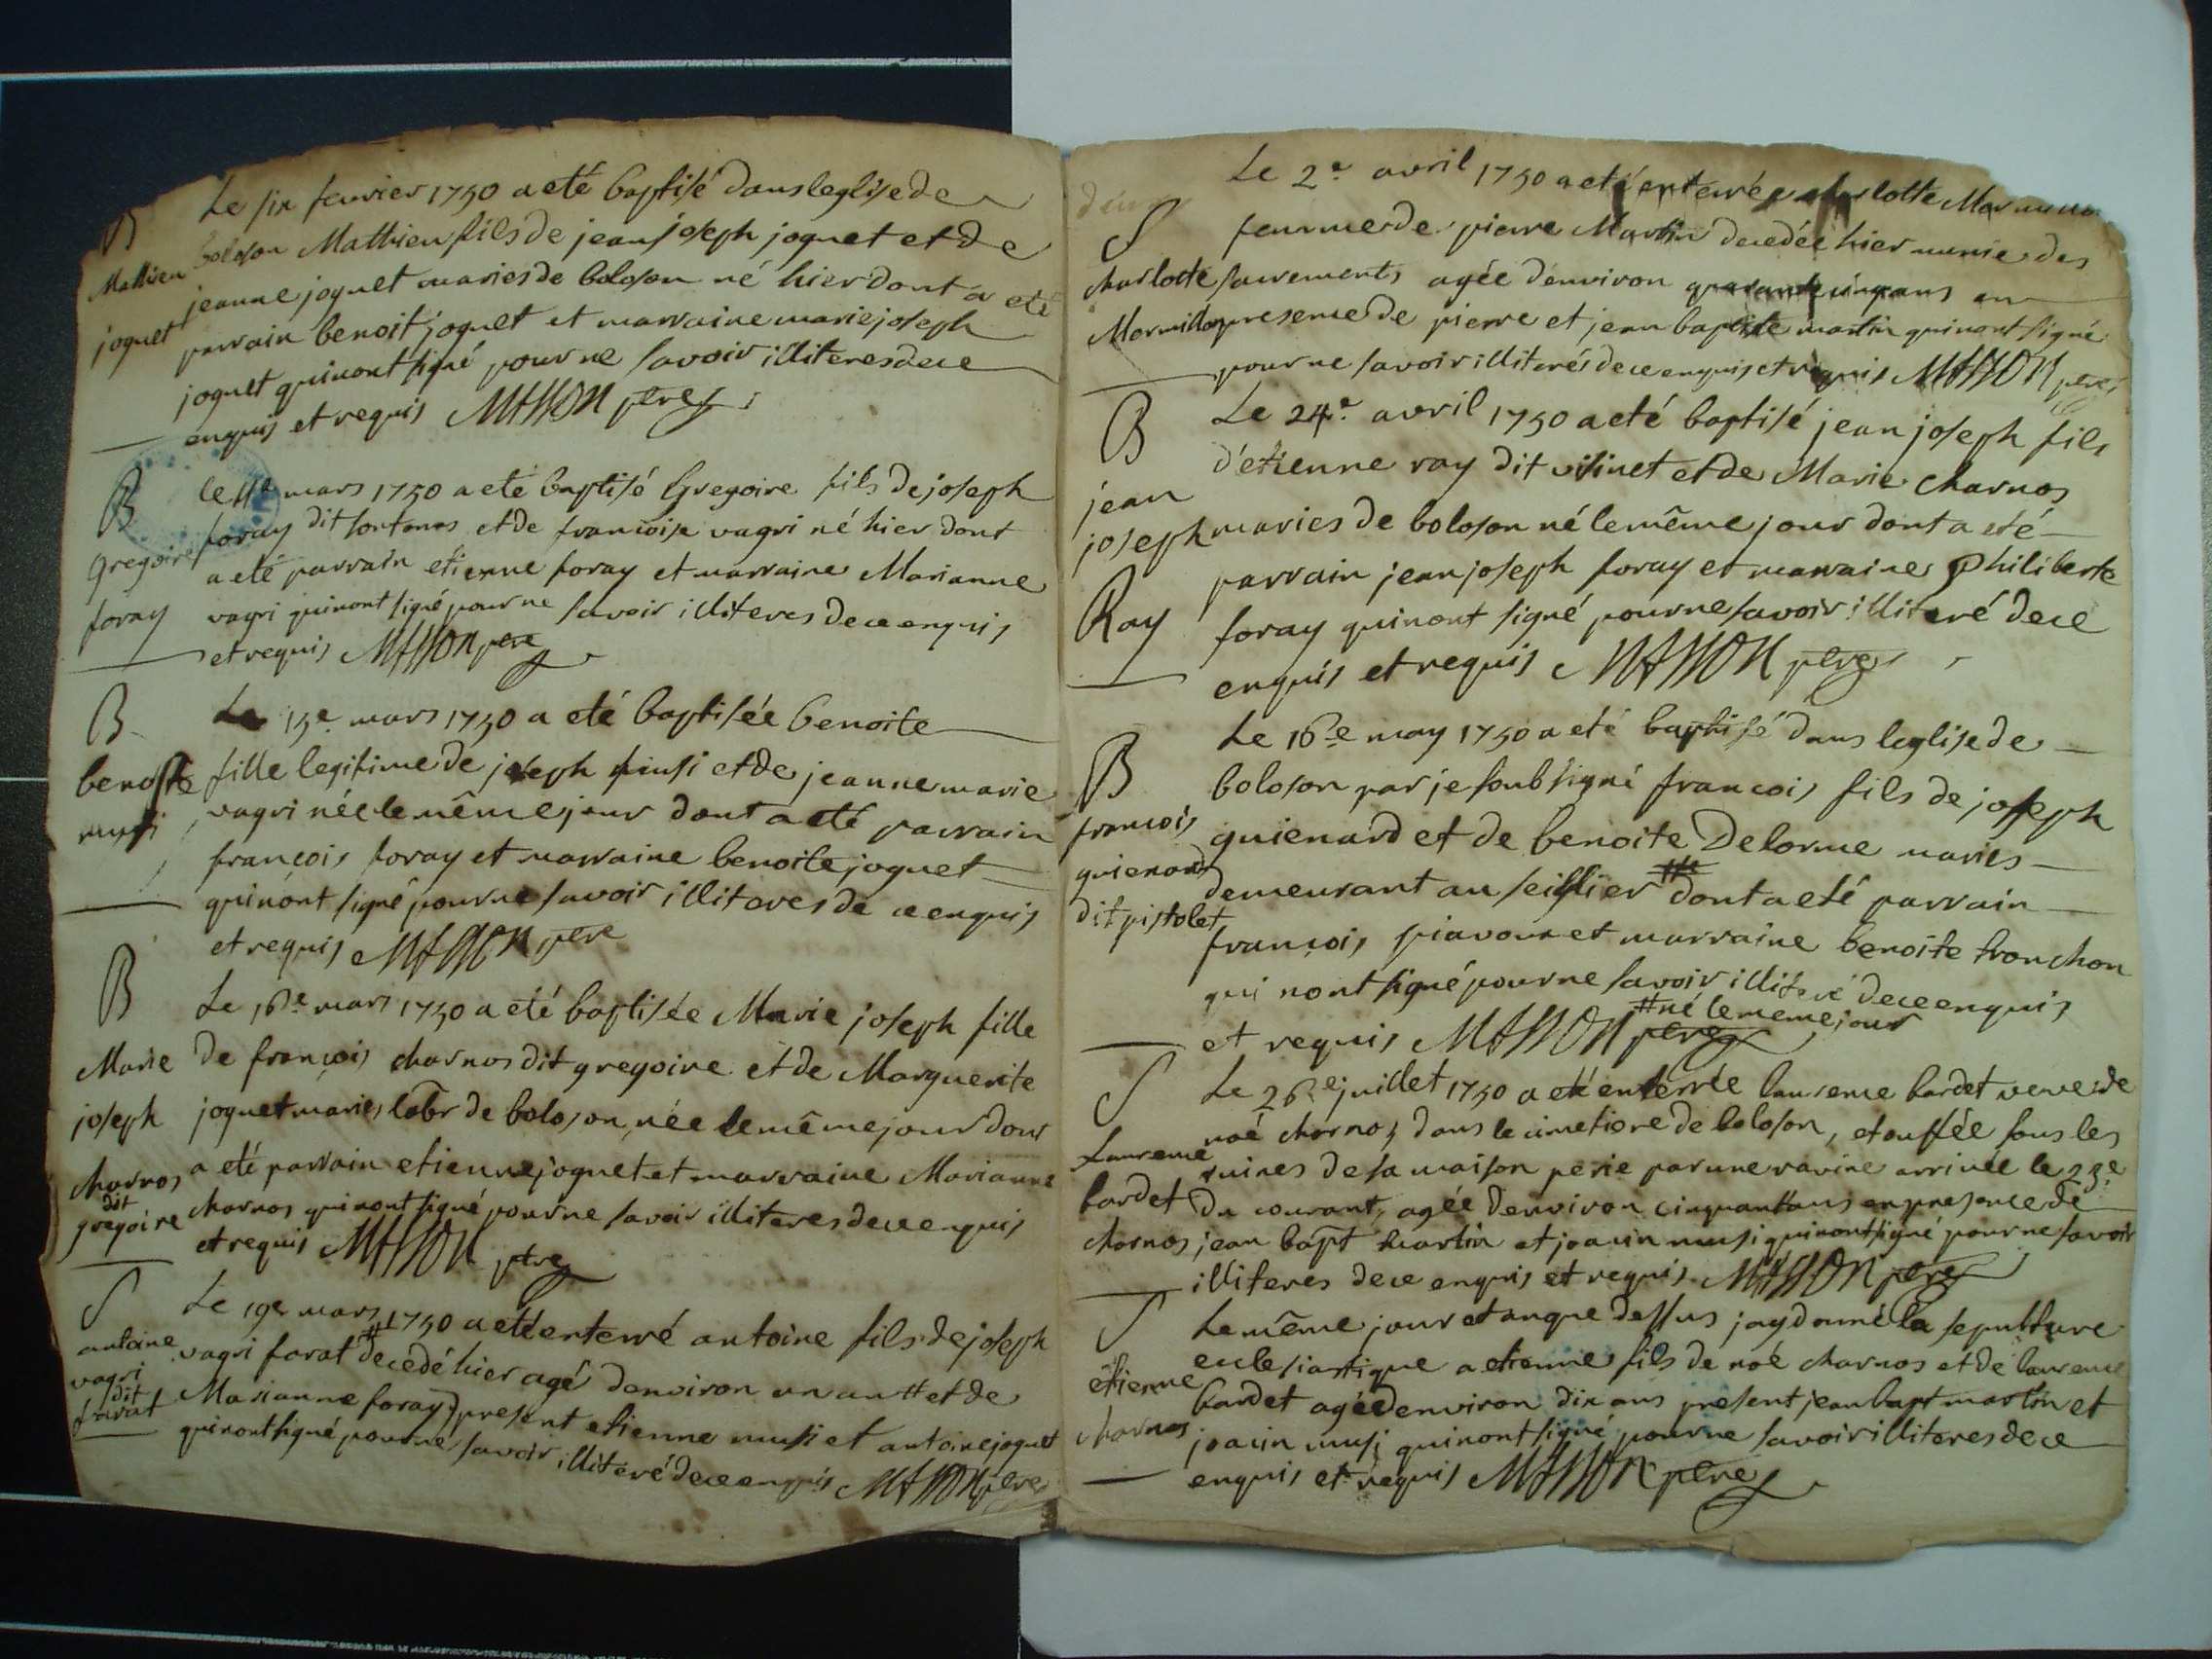 Le six fevrier 1750 a eté baptisé dans leglise de
B
boloson Mathieu fils de jean joseph joguet et de
Mathieu
jeanne joguet maries de boloson né hier dont a eté
joguet
parrain benoit joguet et marraine marie joseph
joguet qui nont signé pour ne savoir illiteres de ce
enquis et requis MASSON ptre
B
le 11e mars 1750 a eté baptisé Gregoire fils de joseph
Gregoire
foray dit fontanas et de francoise vagri né hier dont
a eté parrain etienne foray et marraine Marianne
foray
vagri qui nont signé pour ne savoir illiteres de ce enquis
et requis MASSON ptre
B
Le 15e mars 1750 a eté baptisée benoite
benoite
fille legitime de joseph musi et de jeanne marie
musi
vagri née le même jour dont a eté parrain
françois foray et marraine benoite joguet
qui nont signé pour ne savoir illiteres de ce enquis
et requis MASSON ptre
B
Le 16e mars 1750 a eté baptisée Marie joseph fille
Marie
de françois charnos dit gregoire et de Marguerite
joseph
joguet maries labr de boloson, née le même jour dont
charnos
a eté parrain etienne joguet et marraine Marianne
dit
gregoire
charnos qui nont signé pour ne savoir illiteres de ce enquis
et requis MASSON ptre
S
Le 19e mars 1750 a eté enterré antoine fils de joseph
antoine
vagri farat # decedé hier agé denviron un an # et de
vagri
dit
farat
Marianne foray) present etienne musi et antoine joguet
qui nont signé pour ne savoir illiteré de ce enquis MASSON ptre
Le 2e avril 1750 a eté enterrée charlotte
S
femme de pierre Martin decedée hier munie des
charlotte
sacrements agée denviron quarante cinq ans en
Mermillon
presence de pierre et jean baptiste martin qui nont signé
pour ne savoir illiterés de ce enquis et requis MASSON ptre
B
Le 24e avril 1750 a eté baptisé jean joseph fils
jean
d'etienne ray dit visinet et de Marie charnos
joseph
maries de boloson né le même jour dont a eté
parrain jean joseph foray et marraine Philiberte
Ray
foray qui nont signé pour ne savoir illiteré de ce
enquis et requis MASSON ptre
Le 16e may 1750 a eté baptisé dans leglise de
B
boloson par je soubsigné francois fils de joseph
francois
quienard et de benoite Delorme maries
quienard
demeurant au seissier # dont a eté parrain
dit pistolet
françois piavoux et marraine benoite tronchon
qui nont signé pour ne savoir illiteré de ce enquis
# né le meme jour
et requis MASSON ptre
S
Le 26e juillet 1750 a eté enterrée laurence bardet veve de
Laurence
noé charnos, dans le cimetiere de boloson, etouffée sous les
ruines de sa maison perie par une ravine arrivée le 23e
bardet
du courant, agée denviron cinquantans en presence de
charnos
jean bapt martin et joacin musi qui nont signé pour ne savoir
illiteres de ce enquis et requis MASSON ptre
S
Le même jour et an que dessus jay donné la sepulture
etienne
ecclesiastique a etienne fils de noé charnos et de laurence
bardet agé denviron dix ans present jean bapt martin et
charnos
joacin musi qui nont signé pour ne savoir illiteres de ce
enquis et requis MASSON ptre